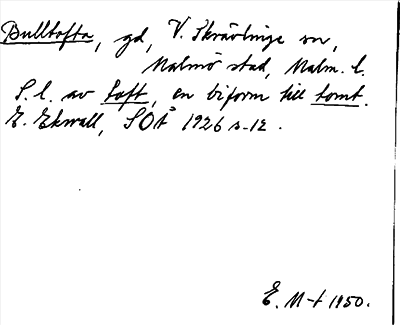 Bulltofta, gd, V. Skrävlinge sn,
Malmö stad, Malm. l.
S. l. av toft, en biform till tomt.
E. Ekwall, SOÅ 1926 s. 12.
E. M-t 1950.